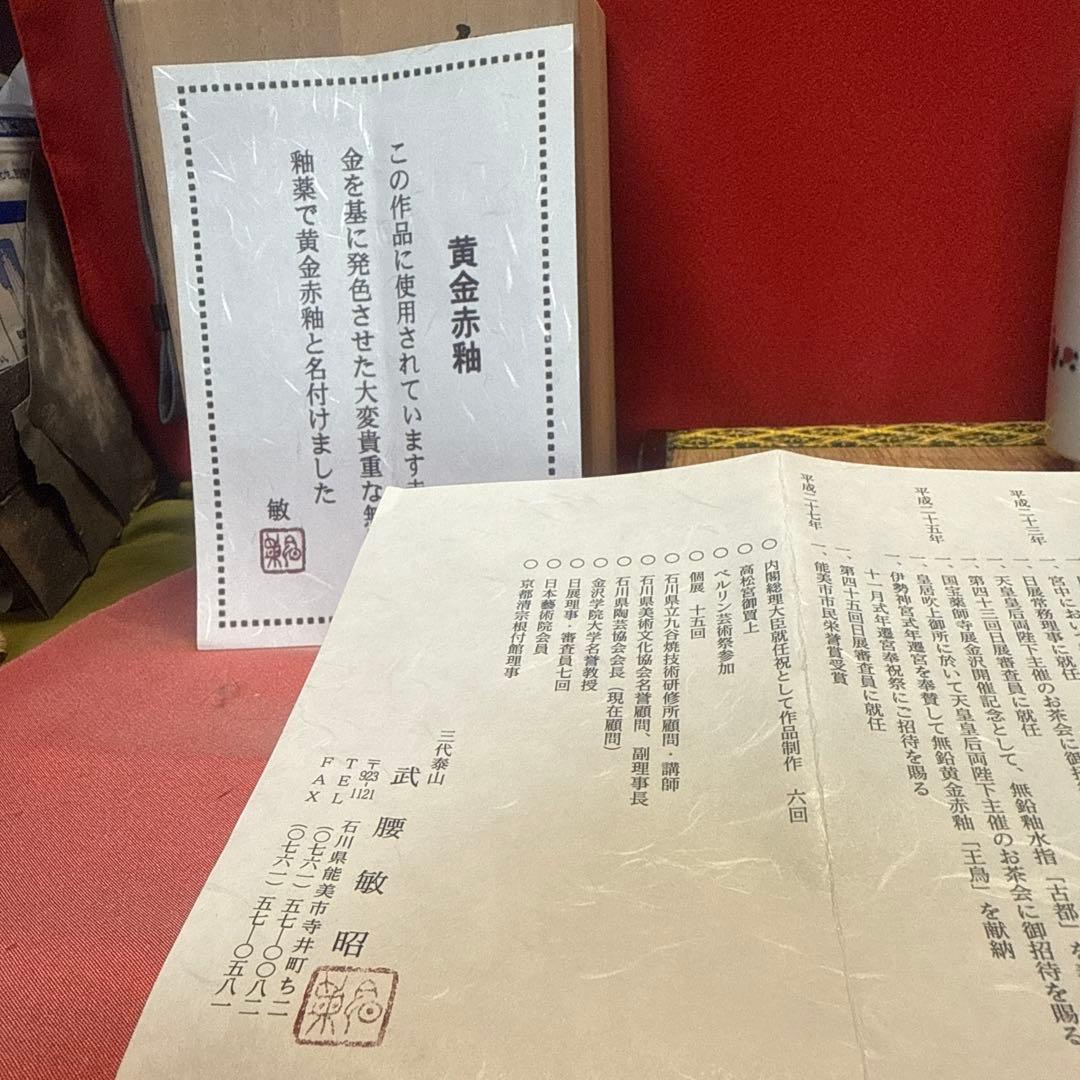 黄金赤釉
この作品に使用されています
金を基に発色させた大変貴重な
釉薬で黄金赤釉と名付けました
敏
宮中におい
日展常務理事に就任
平成二十三年
一、天皇皇后両陛下主催のお茶会に御招
一、第四十三回日展審査員に就任
一、国宝薬師寺展金沢開催記念として、無鉛釉水指「古都」を
平成二十五年
一、皇居吹上御所に於いて天皇皇后両陛下主催のお茶会に御招待を賜る
一、伊勢神宮式年遷宮を奉賛して無鉛黄金赤釉「王鳥」を献納
十一月式年遷宮奉祝祭にご招待を賜る
一、第四十五回日展審査員に就任
平成二十七年
一、能美市市民栄誉賞受賞
○内閣総理大臣就任祝として作品制作 六回
○高松宮御買上
○ベルリン芸術祭参加
○個展 十五回
○石川県立九谷焼技術研修所顧問・講師
○石川県美術文化協会名誉顧問、副理事長
○石川県陶芸協会会長(現在顧問)
○金沢学院大学名誉教授
○日展理事・審査員七回
○日本藝術院会員
○京都清宗根付館理事
三代泰山
武腰敏昭
〒923-1121 石川県能美市寺井町ち二一
TEL (〇七六一)五七―〇〇八二
FAX (〇七六一)五七―〇五八一